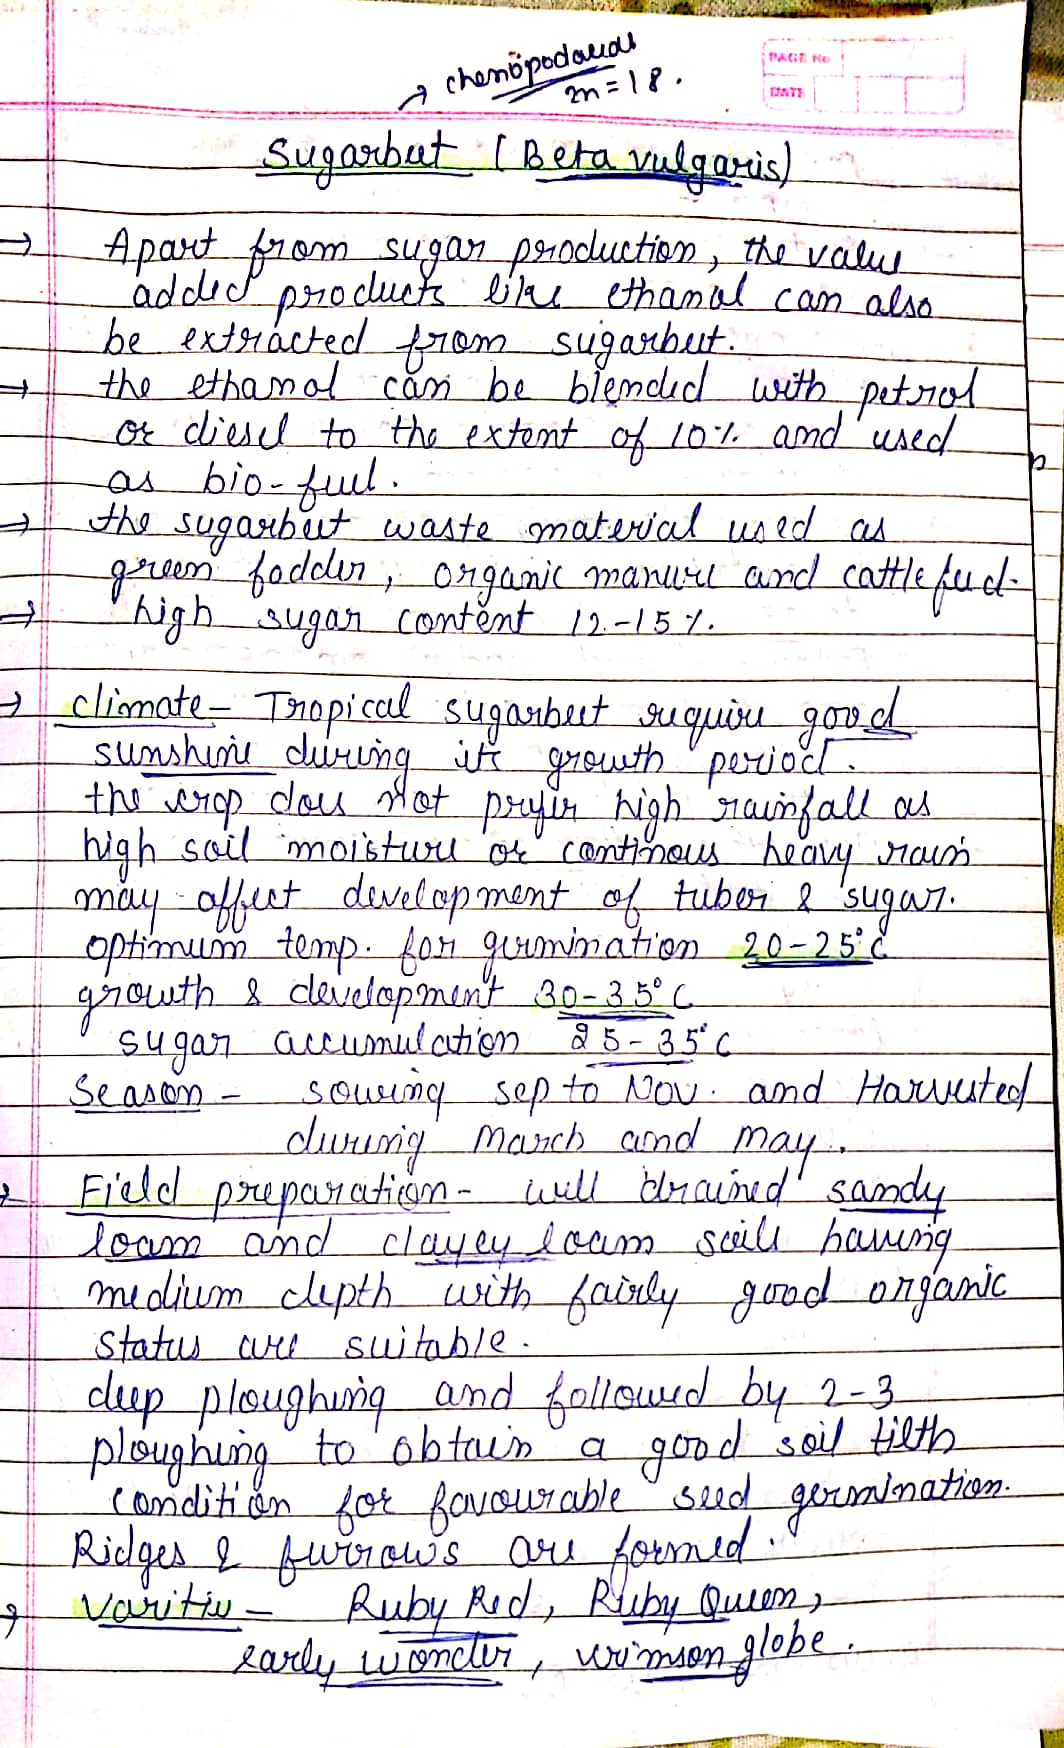 PAGE No
DATE
→ chenopodaceae
2n = 18.
Sugarbeet (Beta vulgaris)
→ Apart from sugar production, the value
added products like ethanol can also
be extracted from sugarbeet.
→ the ethanol can be blended with petrol
or diesel to the extent of 10% and used
as bio-fuel.
→ the sugarbeet waste material used as
green fodder, organic manure and cattle feed.
→ high sugar content 12-15%.
→ climate - Tropical sugarbeet require good
sunshine during its growth period.
the crop does not prefer high rainfall as
high soil moisture or continous heavy rain
may affect development of tuber & sugar.
optimum temp. for germination 20-25°C
growth & development 30-35°C
sugar accumulation 25-35°C
Season - sowing sep to Nov. and Harvested
during March and may.
→ Field preparation - well drained sandy
loam and clayey loam soils having
medium depth with fairly good organic
status are suitable.
deep ploughing and followed by 2-3
ploughing to obtain a good soil tilth
condition for favourable seed germination.
Ridges & furrows are formed.
→ Varitie - Ruby Red, Ruby Queen,
early wonder, crimson globe.